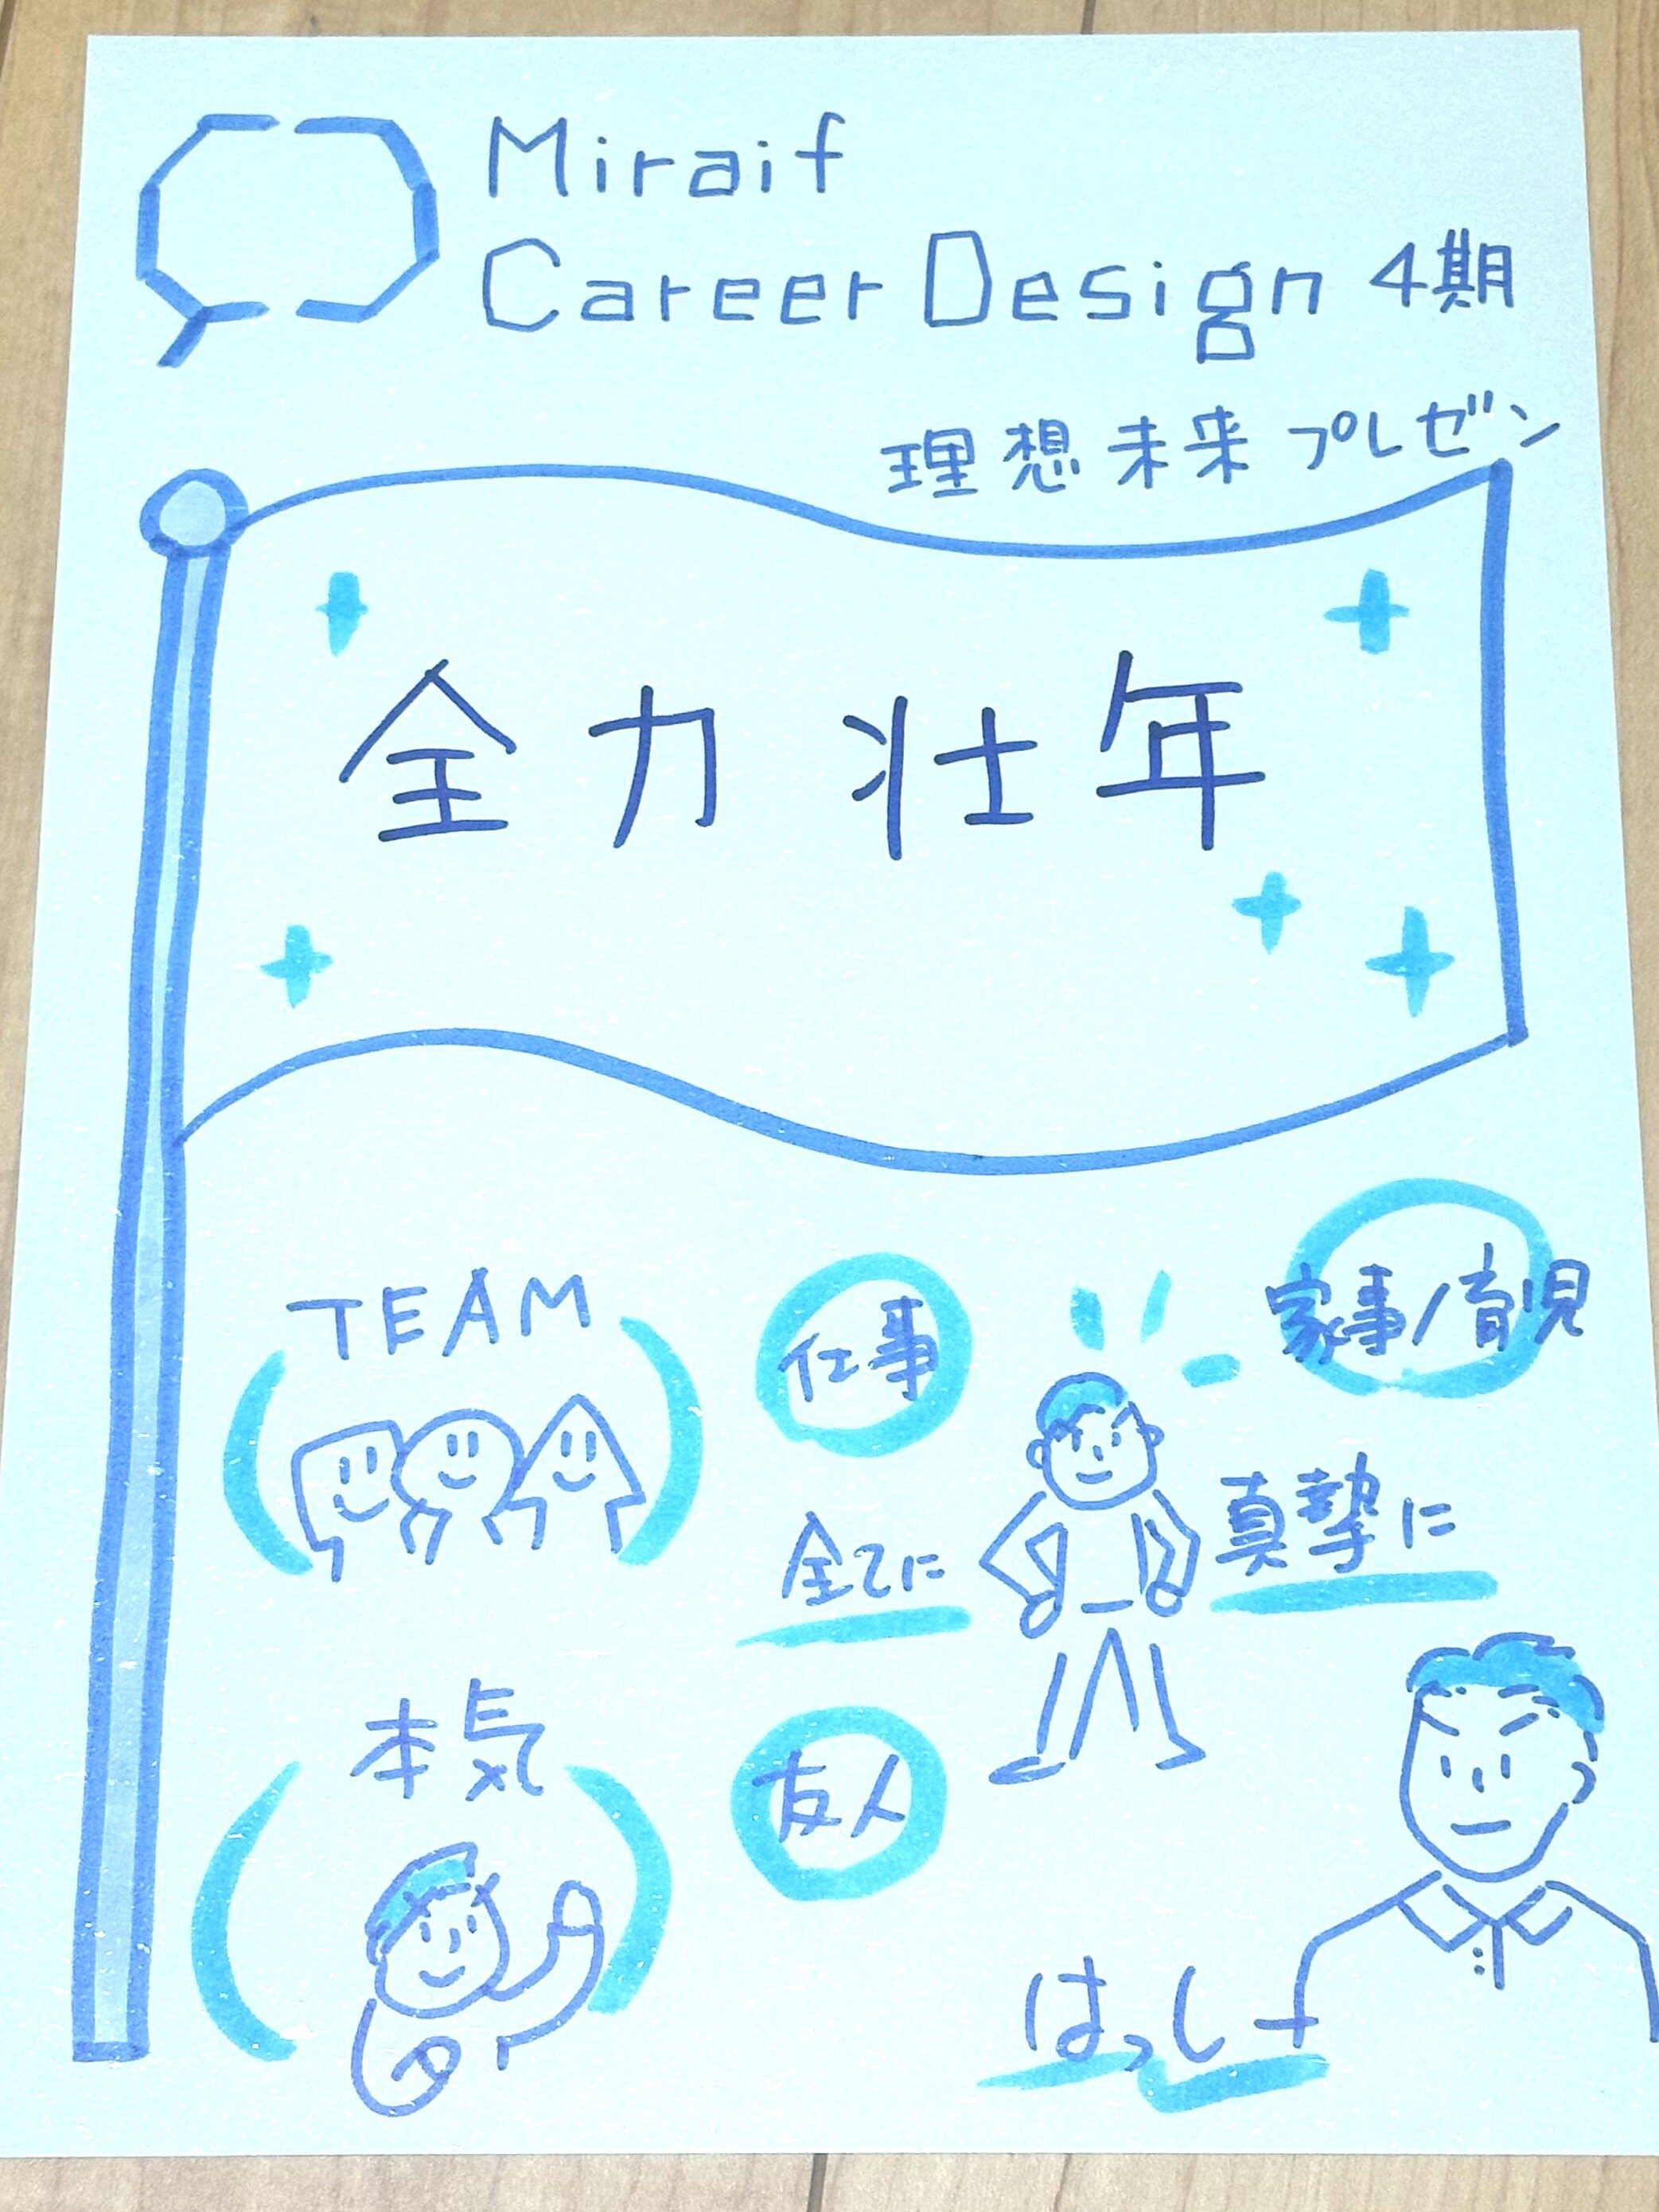 Miraif
Career Design 4期
理想未来プレゼン
全力壮年
TEAM
仕事
家事/育児
全てに
真摯に
本気
友人
はっしー